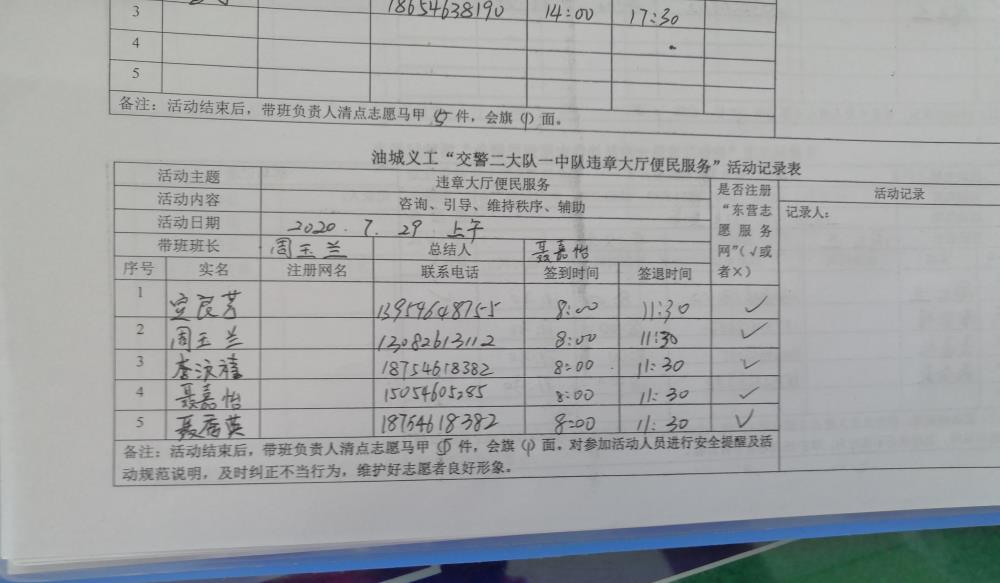 3 18654638190 14:00 17:30
4
5
备注：活动结束后，带班负责人清点志愿马甲（5）件，会旗（1）面。
油城义工“交警二大队一中队违章大厅便民服务”活动记录表
活动主题 违章大厅便民服务 是否注册“东营志愿服务网”（√或者×） 活动记录
活动内容 咨询、引导、维持秩序、辅助 记录人：
活动日期 2020.7.29 上午
带班班长 周玉兰 总结人 聂嘉怡
序号 实名 注册网名 联系电话 签到时间 签退时间
1 良芳 13954648755 8:00 11:30 √
2 周玉兰 13082613112 8:00 11:30 √
3 李 18754618382 8:00 11:30 √
4 聂嘉怡 15054605285 8:00 11:30 √
5 聂 英 18754618382 8:00 11:30 √
备注：活动结束后，带班负责人清点志愿马甲（5）件，会旗（1）面。对参加活动人员进行安全提醒及活
动规范说明，及时纠正不当行为，维护好志愿者良好形象。